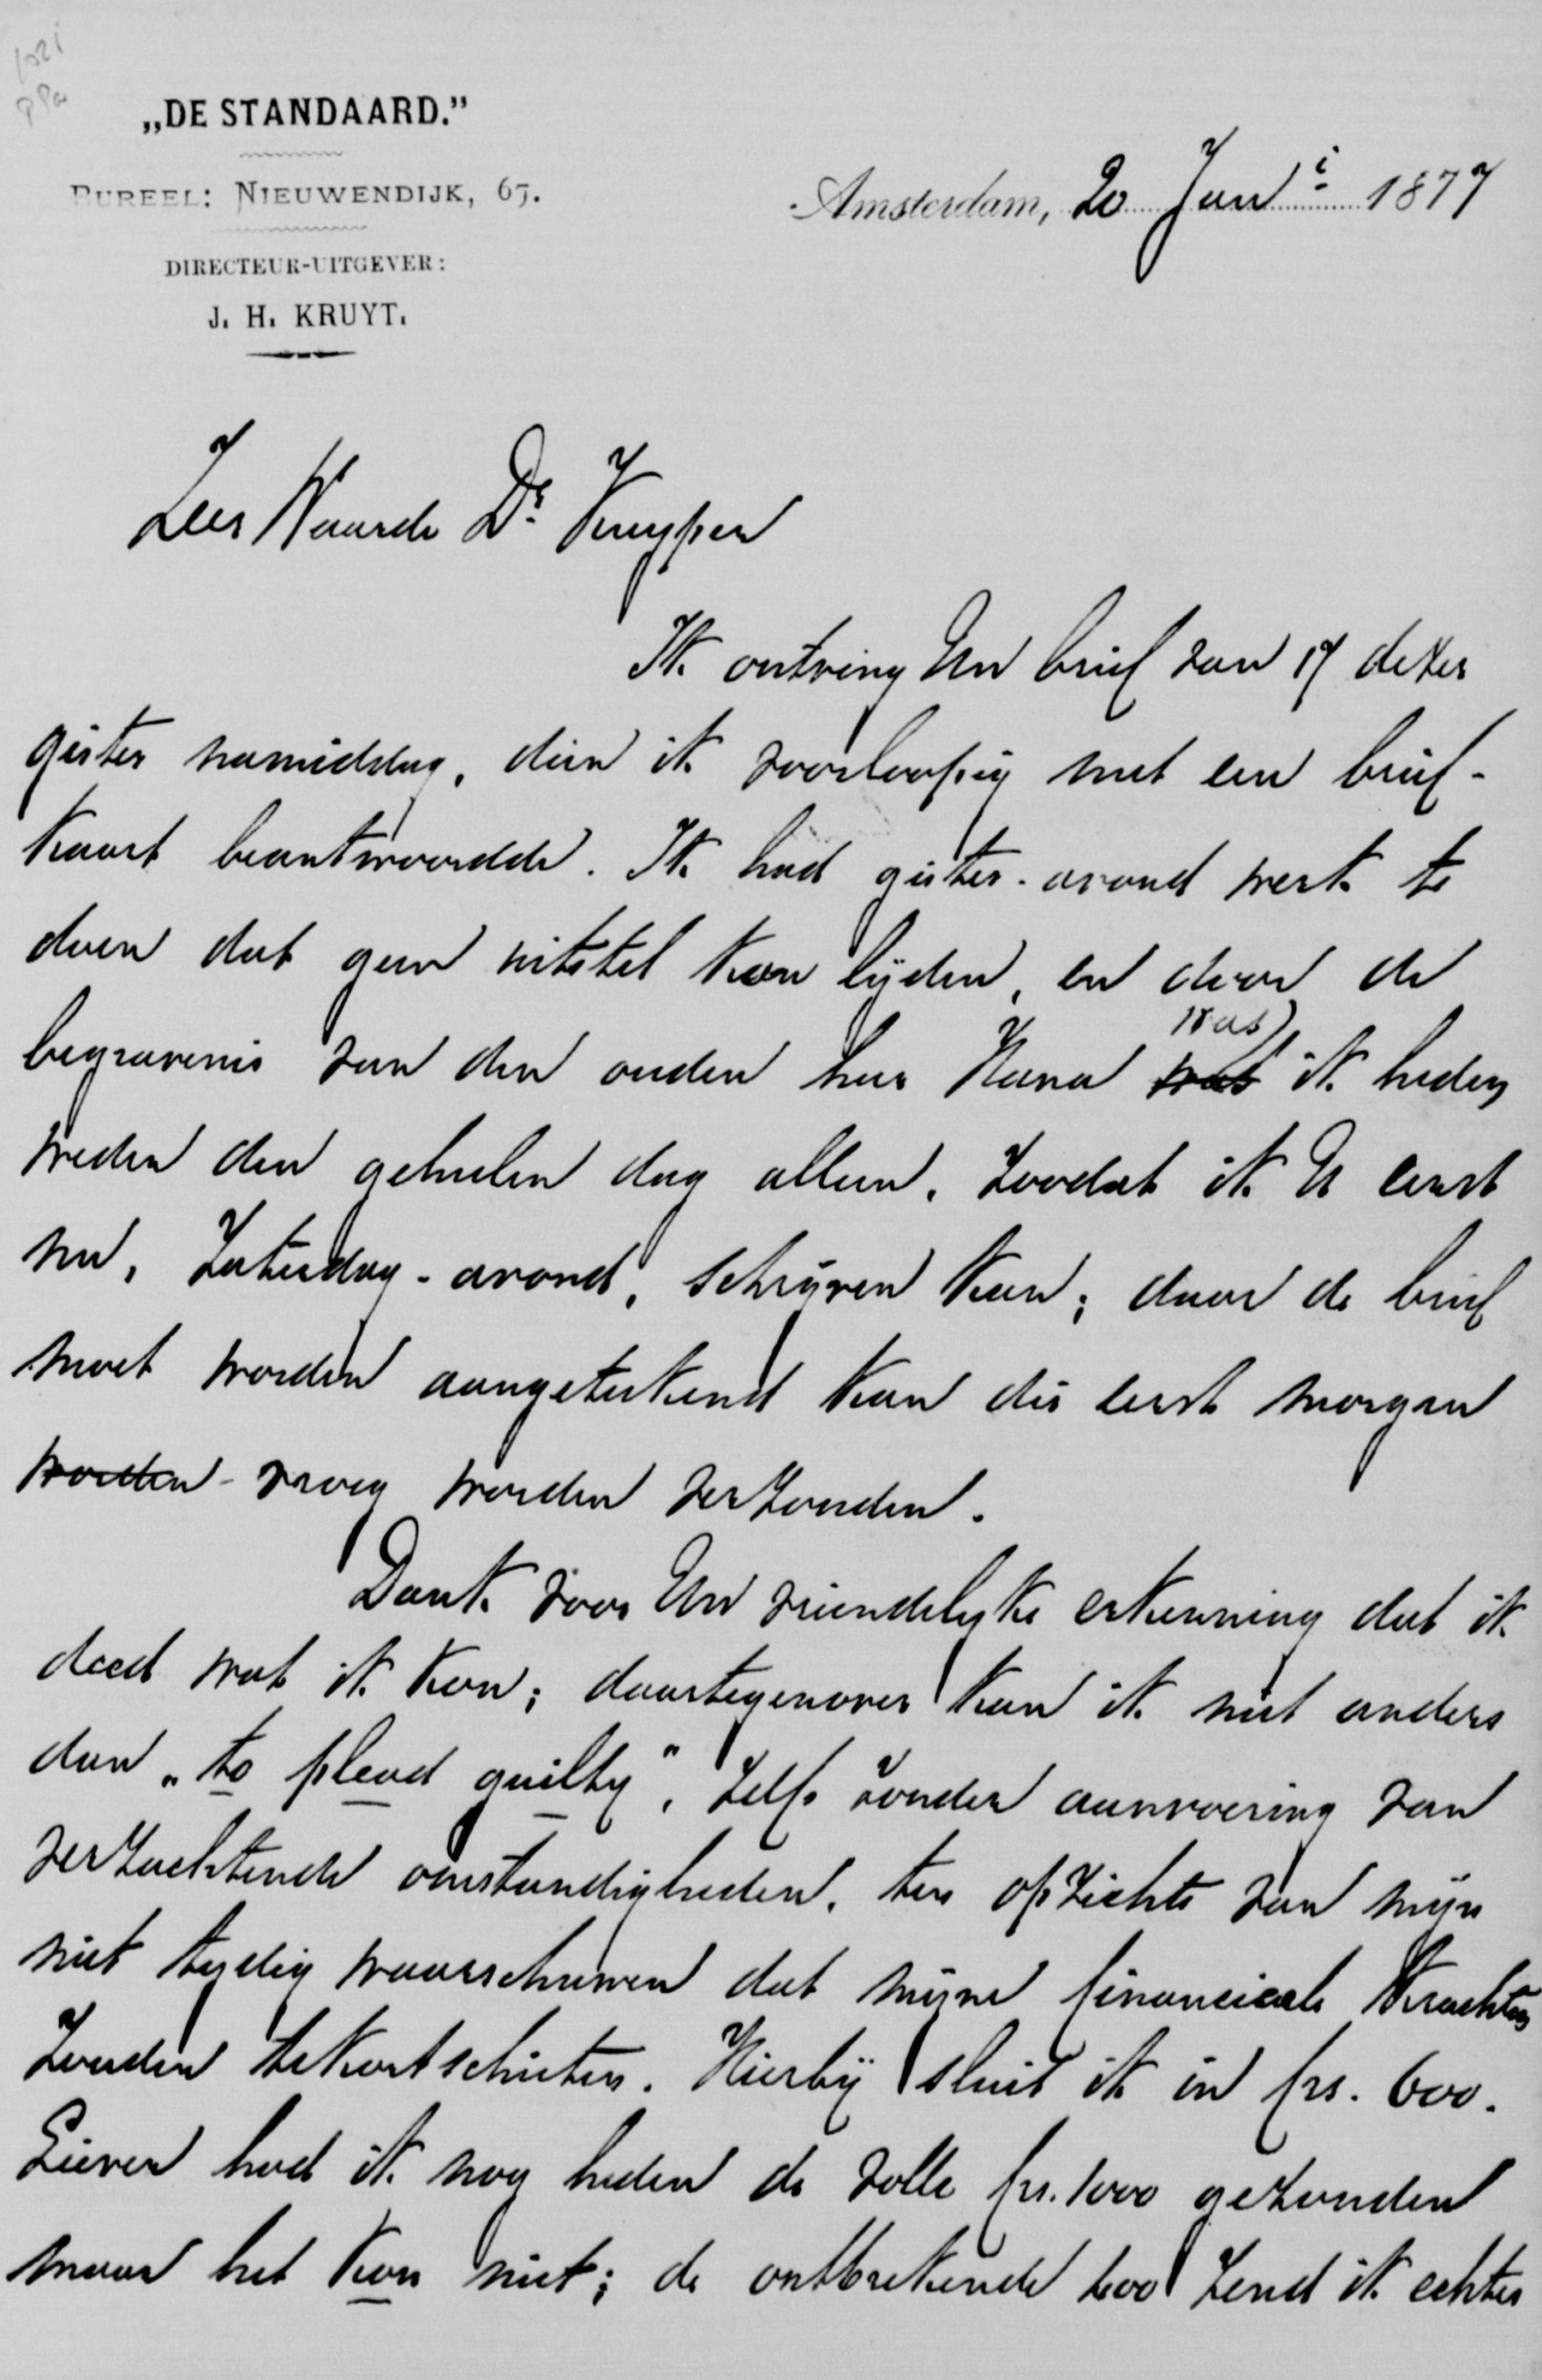 „DE STANDAARD.”
BUREEL: NIEUWENDIJK, 67.
DIRECTEUR-UITGEVER:
J. H. KRUYT.
Amsterdam, 20 Jani 1877
Zeer Waarde Dr. Kuyper
Ik ontving Uw brief van 17 dezer
gister namiddag, dien ik voorloopig met een brief-
kaart beantwoordde. Ik had gister-avond werk te
doen dat geen uitstel kon lijden, en door de
begravenis van den ouden heer was ik heden
weder den geheelen dag alleen. Zoodat ik U eerst
nu, Zaterdag-avond, schrijven kan; daar de brief
moet worden aangeteekend kan die eerst morgen
worden vroeg worden verzonden.
Dank voor Uw vriendelyke erkenning dat ik
deed wat ik kon; daartegenover kan ik niet anders
dan „to plead guilty”, zelfs zonder aanvoering van
verzachtende omstandigheden, ten opzichte van mijn
niet tydig waarschuwen dat mijne financieele krachten
zouden tekortschieten. Hierbij sluit ik in frs. 600.
Liever had ik nog heden de volle frs. 1000 gezonden
maar het kon niet; de ontbrekende 400 zend ik echter